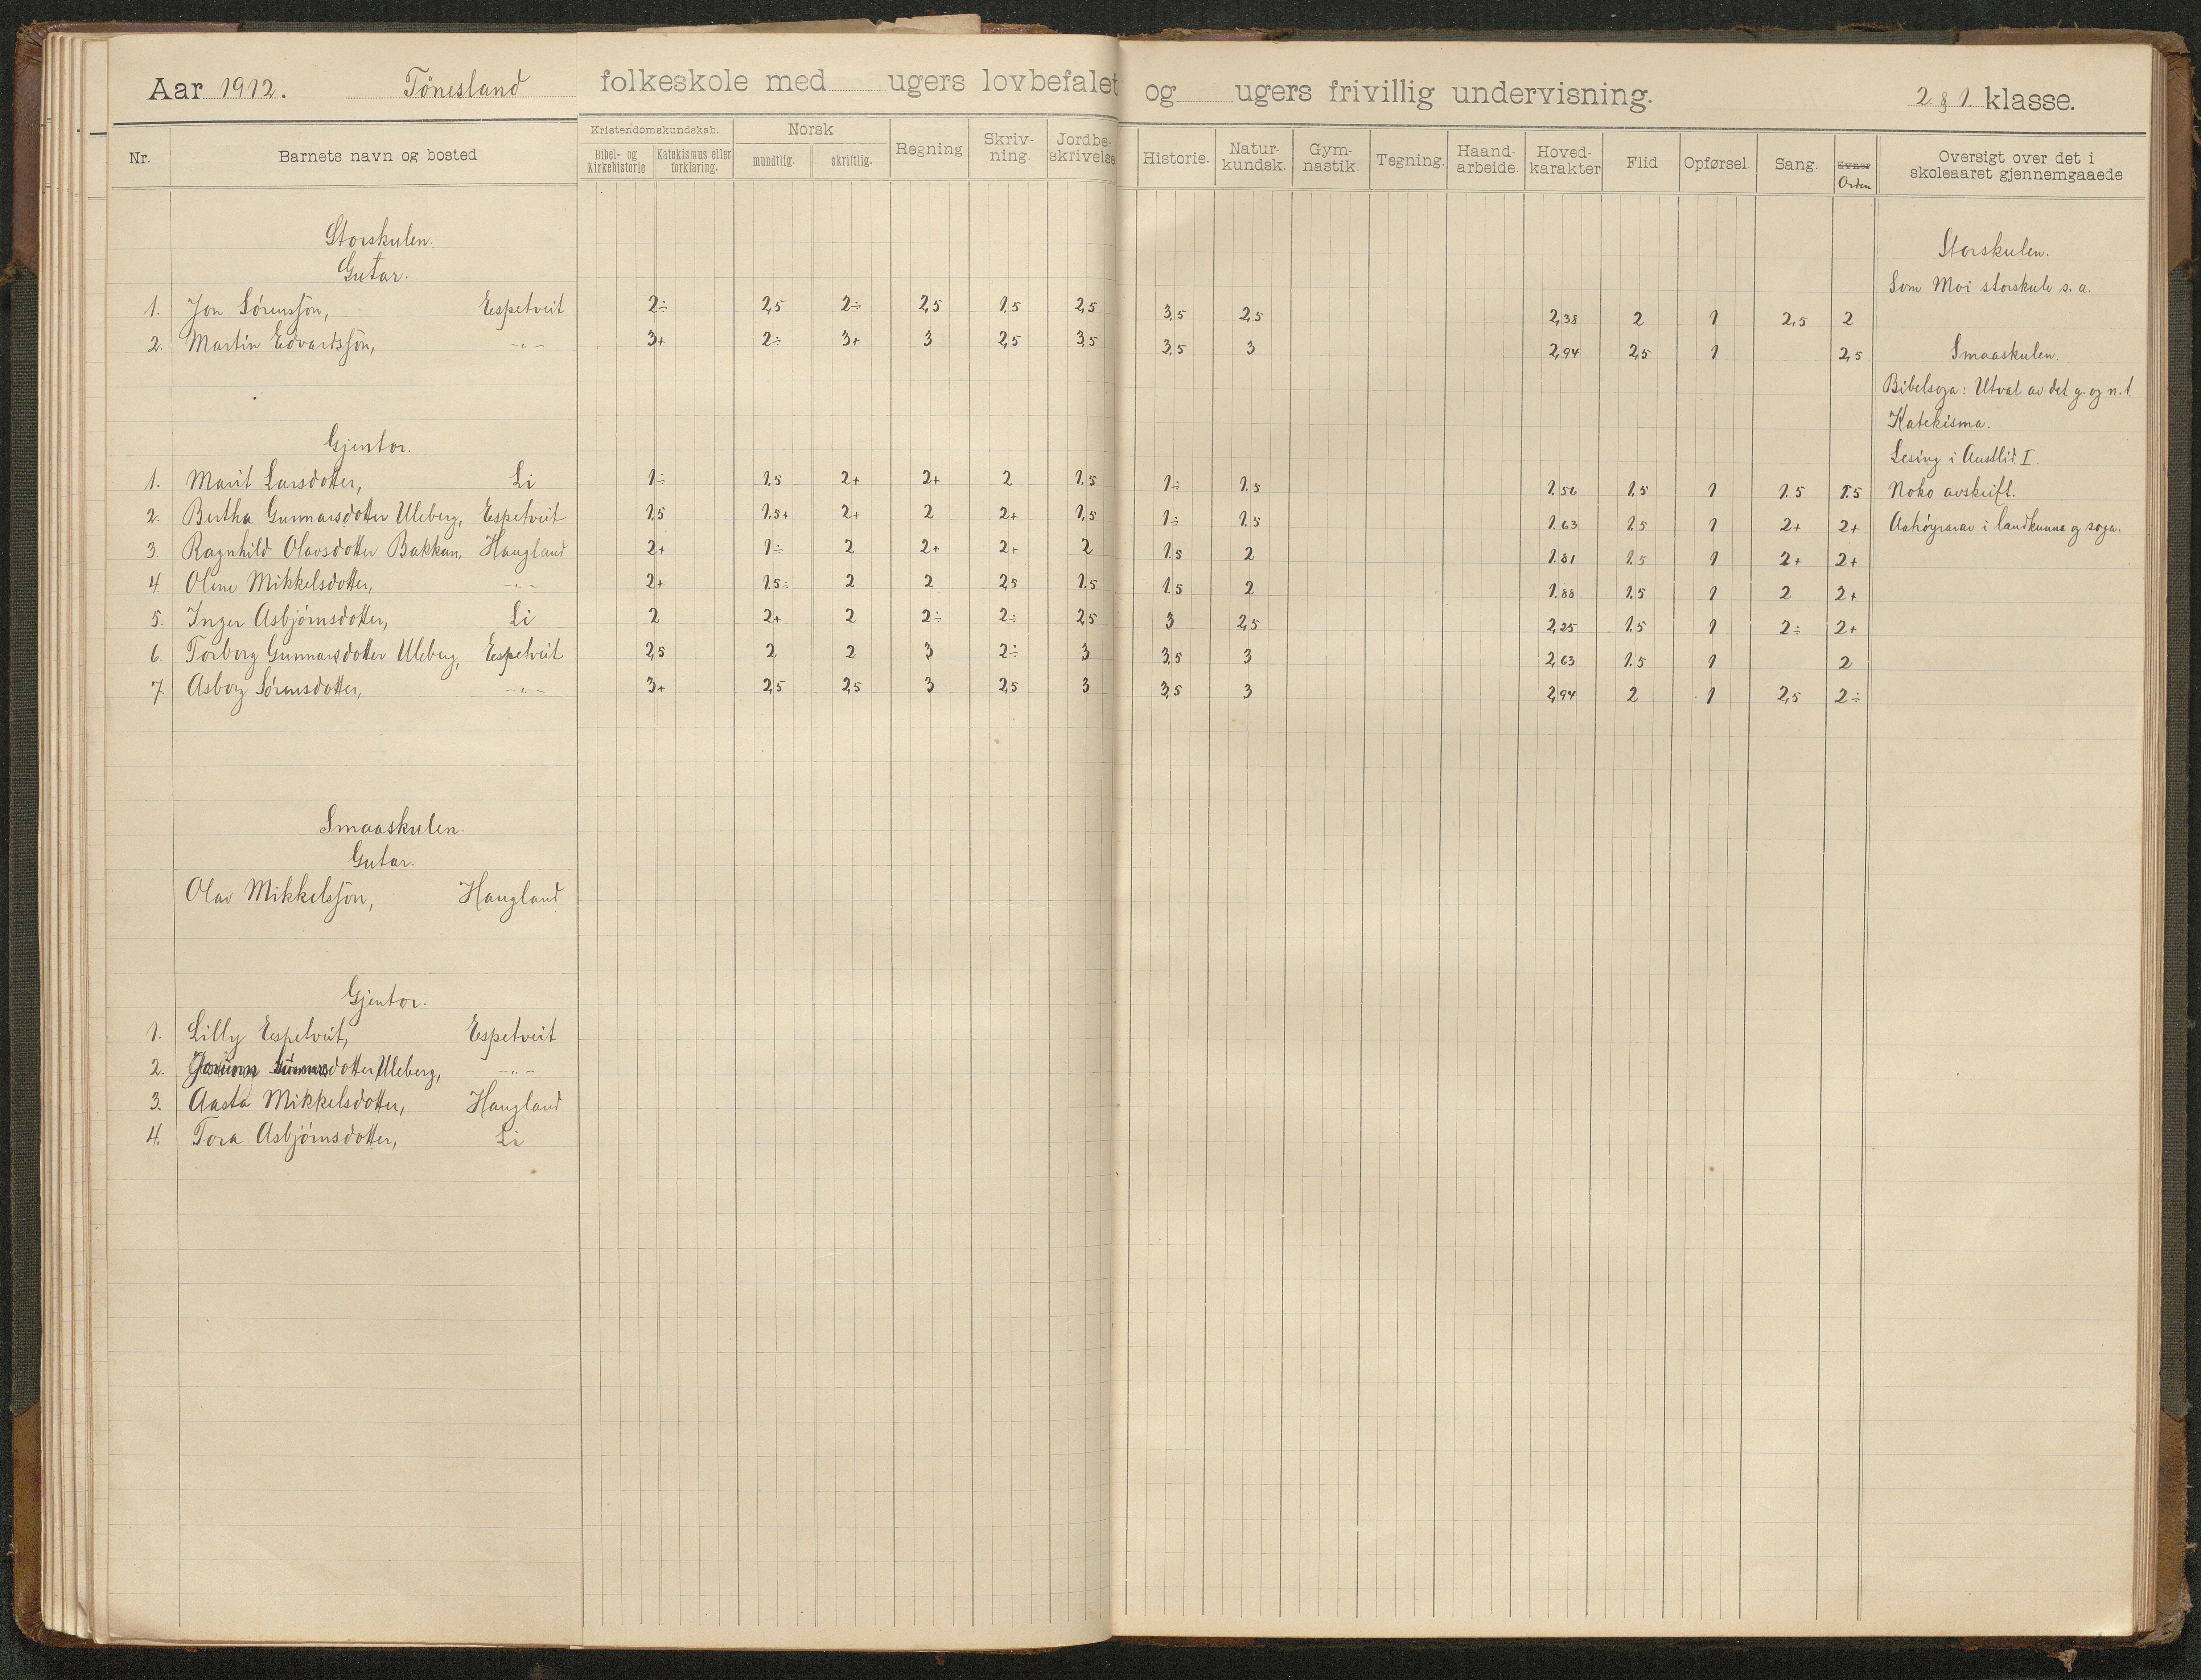 Aar 1912. Tönesland folkeskole med ugers lovbefalet og ugers frivillig undervisning. 2 & 1 klasse.
Nr. Barnets navn og bosted Kristendomskundskab. Bibel- og kirkehistorie Katekismus eller forklaring. Norsk mundtlig. skriftlig. Regning Skriv-ning. Jordbe-skrivelse Historie. Natur-kundsk. Gym-nastik. Tegning. Haand-arbeide. Hoved-karakter Flid Opførsel. Sang. Evner Orden Oversigt over det i skoleaaret gjennemgaaede
Storskulen.
Gutar.
1. Jon Sørensson, Espetveit 2÷ 2,5 2÷ 2,5 1.5 2,5 3,5 2,5 2,38 2 1 2,5 2
2. Martin Edvardsson, -"- 3+ 2÷ 3+ 3 2,5 3,5 3,5 3 2,94 2,5 1 2,5
Gjentor.
1. Marit Larsdotter, Li 1÷ 1,5 2+ 2+ 2 1.5 1÷ 1.5 1.56 1.5 1 1.5 1.5
2. Bertha Gunnarsdotter Uleberg, Espetveit 1,5 1.5+ 2+ 2 2+ 1,5 1÷ 1.5 1.63 1.5 1 2+ 2+
3. Ragnhild Olavsdotter Bakkan, Haugland 2+ 1÷ 2 2+ 2+ 2 1.5 2 1.81 1.5 1 2+ 2+
4. Oline Mikkelsdotter, -"- 2+ 1.5÷ 2 2 2,5 1.5 1.5 2 1.88 1.5 1 2 2+
5. Inger Asbjörnsdotter, Li 2 2+ 2 2÷ 2÷ 2,5 3 2,5 2,25 1.5 1 2÷ 2+
6. Torborg Gunnarsdotter Uleberg, Espetveit 2,5 2 2 3 2÷ 3 3,5 3 2,63 1.5 1 2
7. Asborg Sørensdotter, -"- 3+ 2,5 2,5 3 2,5 3 3,5 3 2,94 2 1 2,5 2÷
Smaaskulen.
Gutar.
Olav Mikkelsson, Haugland
Gjentor.
1. Lilly Espetveit, Espetveit
2. Gunnarsdotter Uleberg, -"-
3. Aasta Mikkelsdotter, Haugland
4. Tora Asbjörnsdotter, Li
Storskulen.
Som Moi storskule s. a.
Smaaskulen.
Bibelsoga: Utval av det g. og n. t.
Katekisma.
Lesing i Austlid I.
Noko avskrift.
Aahøyrarar i landkunna og soga.